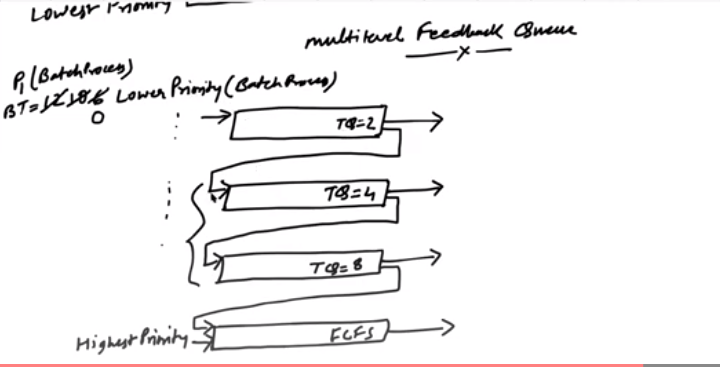 Lowest Priority
multilevel Feedback Queue
P1 (BatchProcess)
BT=12 10 6 Lower Priority (BatchProcess)
0
TQ=2
TQ=4
TQ=8
Highest Priority
FCFS